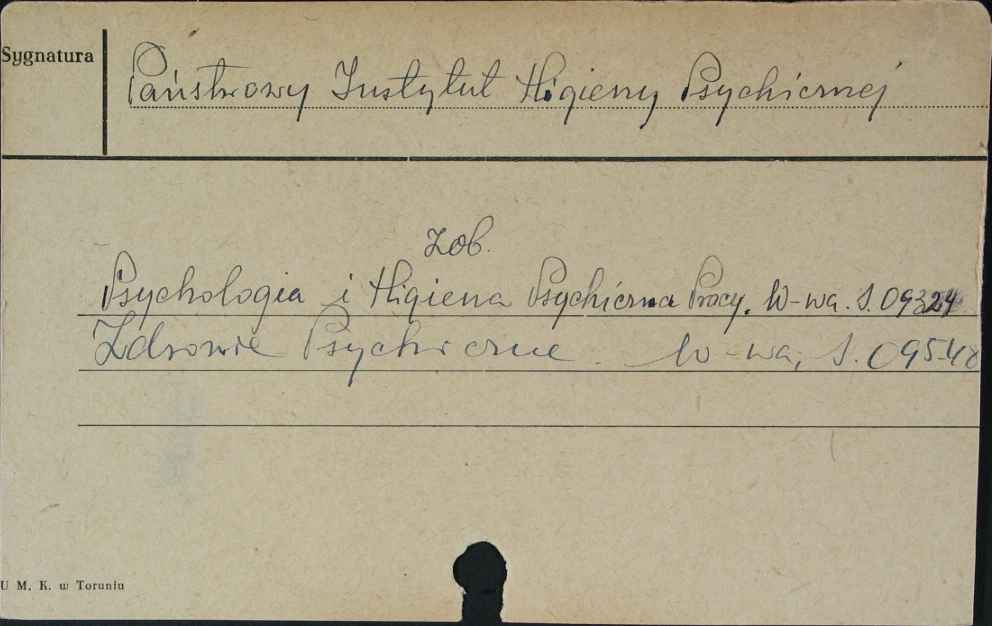 Sygnatura
Państwowy Instytut Higieny Psychicznej
zob.
Psychologia i Higiena Psychiczna Pracy. W-wa. S. 09324
Zdrowie Psychiczne. W-wa, S. 09548
U M. K. w Toruniu